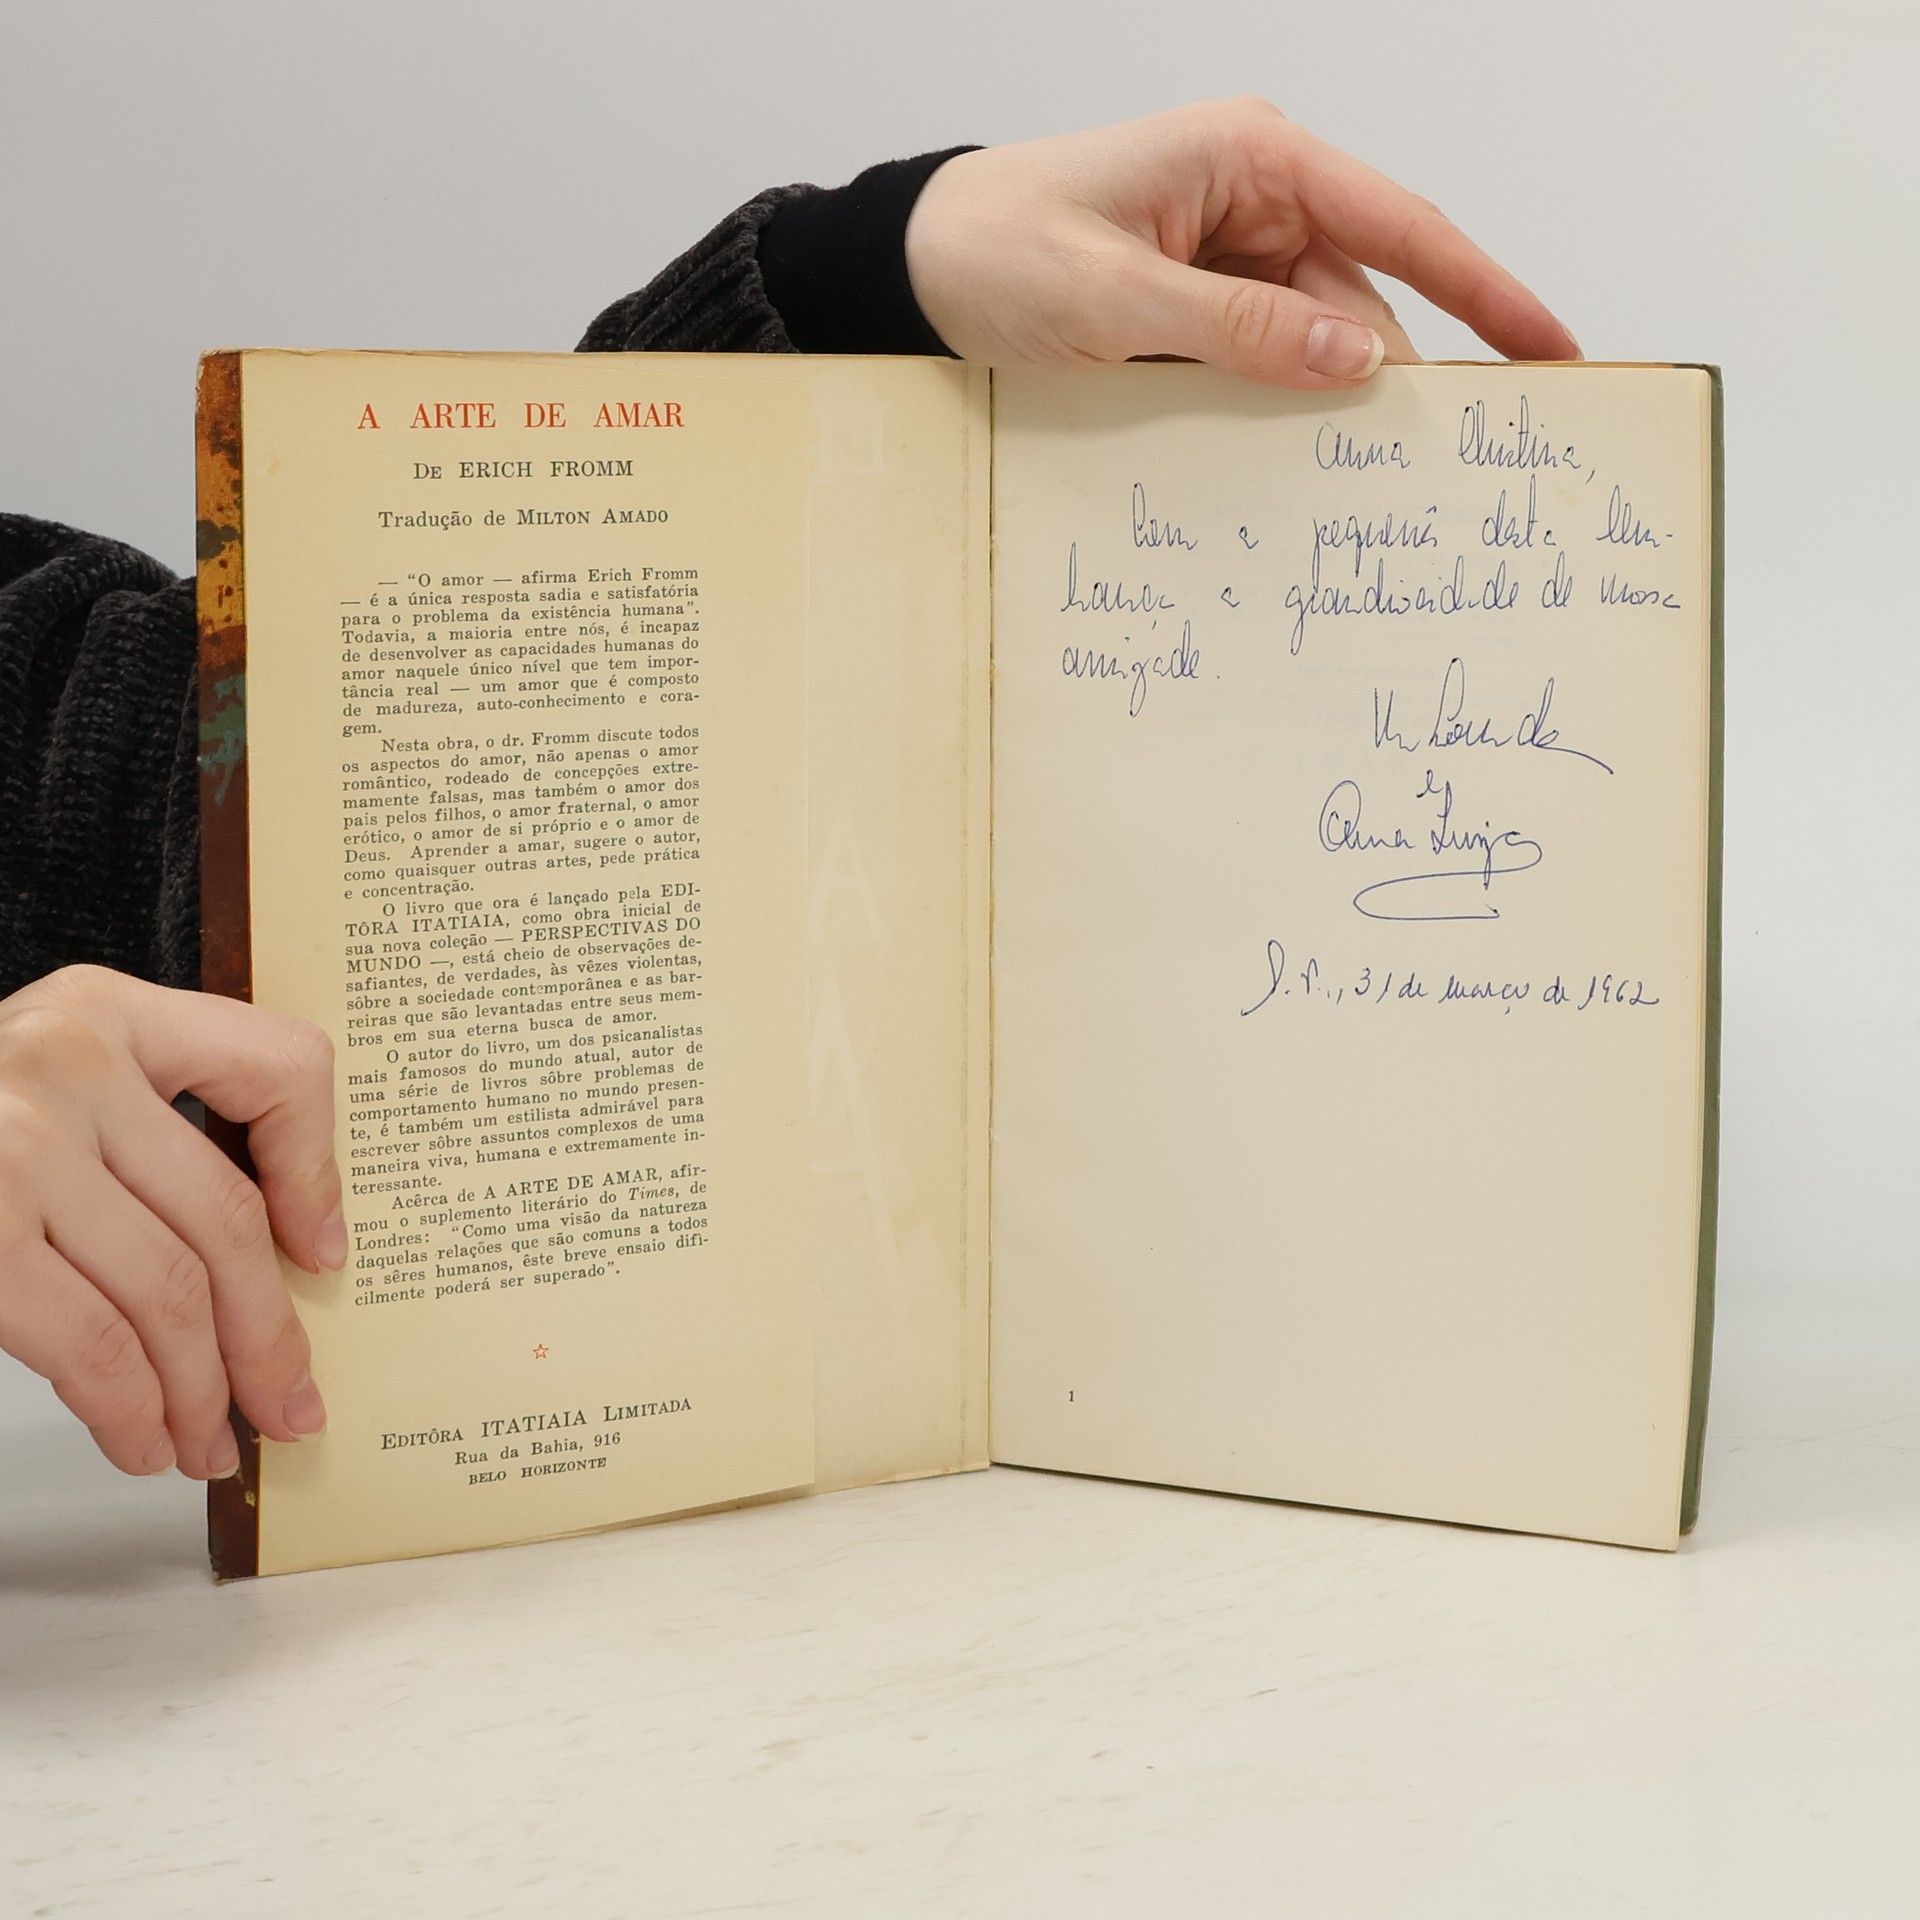 A ARTE DE AMAR
DE ERICH FROMM
Tradução de MILTON AMADO
— "O amor — afirma Erich Fromm
— é a única resposta sadia e satisfatória
para o problema da existência humana".
Todavia, a maioria entre nós, é incapaz
de desenvolver as capacidades humanas do
amor naquele único nível que tem impor-
tância real — um amor que é composto
de madureza, auto-conhecimento e cora-
gem.
Nesta obra, o dr. Fromm discute todos
os aspectos do amor, não apenas o amor
romântico, rodeado de concepções extre-
mamente falsas, mas também o amor dos
pais pelos filhos, o amor fraternal, o amor
erótico, o amor de si próprio e o amor de
Deus. Aprender a amar, sugere o autor,
como quaisquer outras artes, pede prática
e concentração.
O livro que ora é lançado pela EDI-
TÔRA ITATIAIA, como obra inicial de
sua nova coleção — PERSPECTIVAS DO
MUNDO —, está cheio de observações de-
safiantes, de verdades, às vêzes violentas,
sôbre a sociedade contemporânea e as bar-
reiras que são levantadas entre seus mem-
bros em sua eterna busca de amor.
O autor do livro, um dos psicanalistas
mais famosos do mundo atual, autor de
uma série de livros sôbre problemas de
comportamento humano no mundo presen-
te, é também um estilista admirável para
escrever sôbre assuntos complexos de uma
maneira viva, humana e extremamente in-
teressante.
Acêrca de A ARTE DE AMAR, afir-
mou o suplemento literário do Times, de
Londres: "Como uma visão da natureza
daquelas relações que são comuns a todos
os sêres humanos, êste breve ensaio difi-
cilmente poderá ser superado".
EDITÔRA ITATIAIA LIMITADA
Rua da Bahia, 916
BELO HORIZONTE
Anna Christina,
Com a pequenês desta lem-
brança a grandiosidade de nossa
amizade.
e
Anna Luiza
31 de março de 1962
1